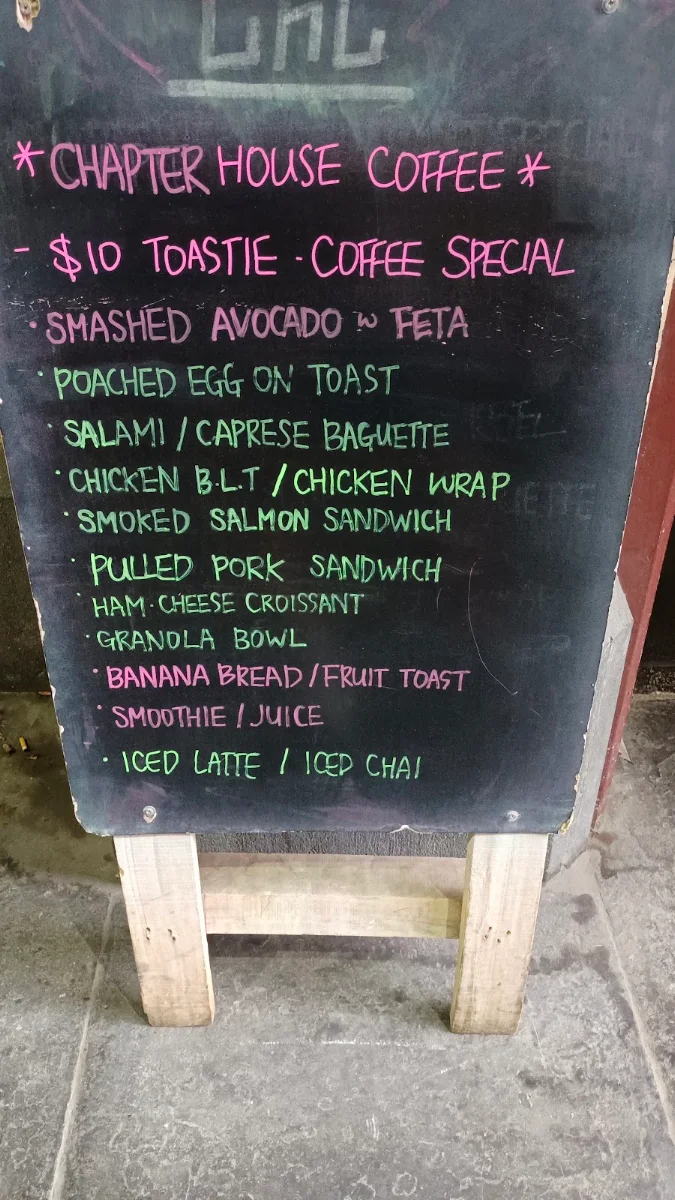 CHC
* CHAPTER HOUSE COFFEE *
- $10 TOASTIE - COFFEE SPECIAL
· SMASHED AVOCADO w FETA
· POACHED EGG ON TOAST
· SALAMI / CAPRESE BAGUETTE
· CHICKEN B.L.T / CHICKEN WRAP
· SMOKED SALMON SANDWICH
· PULLED PORK SANDWICH
· HAM·CHEESE CROISSANT
· GRANOLA BOWL
· BANANA BREAD / FRUIT TOAST
· SMOOTHIE / JUICE
· ICED LATTE / ICED CHAI